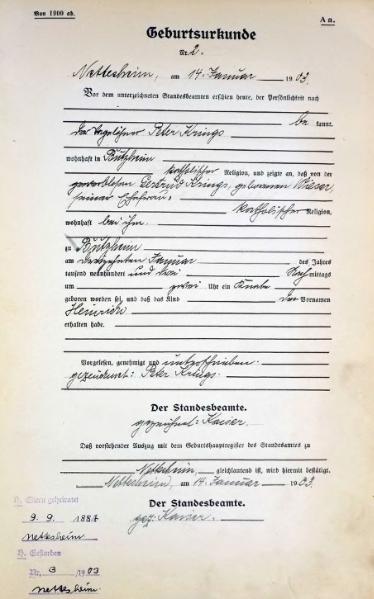 Von 1900 ab.
A a.
Geburtsurkunde
Nr. 2.
Nettesheim, am 14. Januar 1903.
Vor dem unterzeichneten Standesbeamten erschien heute, der Persönlichkeit nach
be kannt.
der Tagelöhner Peter Krings
wohnhaft in Bützheim
katholischer Religion, und zeigte an, daß von der
Gertrud Krings, geborenen Wieser
seiner Ehefrau,
katholischer Religion,
wohnhaft bei ihm.
zu Bützheim
am dreizehnten Januar des Jahres
tausend neunhundert und drei Nachmittags
um zwei Uhr ein Knabe
geboren worden sei, und daß das Kind den Vornamen
Heinrich
erhalten habe.
Vorgelesen, genehmigt und unterschrieben.
gezeichnet: Peter Krings
Der Standesbeamte.
gezeichnet: Kaiser.
Daß vorstehender Auszug mit dem Geburtshauptregister des Standesamtes zu
Nettesheim gleichlautend ist, wird hiermit bestätigt.
Nettesheim, am 14. Januar 1903.
Der Standesbeamte.
gez: Kaiser.
Eltern geheiratet
9. 9. 1887
nettesheim
Gestorben
Nr. 3 / 1903
nettesheim